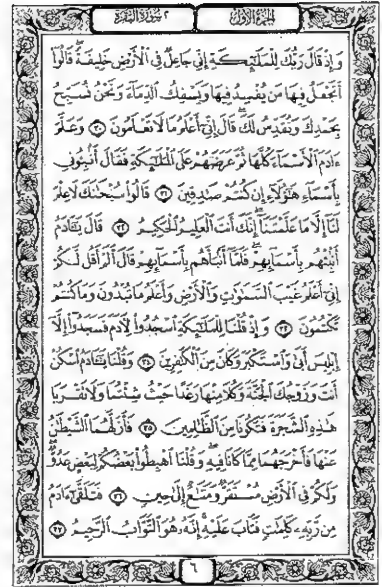 الجزء الأول
٢ سورة البقرة
وَإِذْ قَالَ رَبُّكَ لِلْمَلَٰٓئِكَةِ إِنِّي جَاعِلٌ فِي ٱلْأَرْضِ خَلِيفَةً ۖ قَالُوٓا۟
أَتَجْعَلُ فِيهَا مَن يُفْسِدُ فِيهَا وَيَسْفِكُ ٱلدِّمَآءَ وَنَحْنُ نُسَبِّحُ
بِحَمْدِكَ وَنُقَدِّسُ لَكَ ۖ قَالَ إِنِّيٓ أَعْلَمُ مَا لَا تَعْلَمُونَ ٣٠ وَعَلَّمَ
ءَادَمَ ٱلْأَسْمَآءَ كُلَّهَا ثُمَّ عَرَضَهُمْ عَلَى ٱلْمَلَٰٓئِكَةِ فَقَالَ أَنۢبِـُٔونِي
بِأَسْمَآءِ هَٰٓؤُلَآءِ إِن كُنتُمْ صَٰدِقِينَ ٣١ قَالُوا۟ سُبْحَٰنَكَ لَا عِلْمَ
لَنَآ إِلَّا مَا عَلَّمْتَنَآ ۖ إِنَّكَ أَنتَ ٱلْعَلِيمُ ٱلْحَكِيمُ ٣٢ قَالَ يَٰٓـَٔادَمُ
أَنۢبِئْهُم بِأَسْمَآئِهِمْ ۖ فَلَمَّآ أَنۢبَأَهُم بِأَسْمَآئِهِمْ قَالَ أَلَمْ أَقُل لَّكُمْ
إِنِّيٓ أَعْلَمُ غَيْبَ ٱلسَّمَٰوَٰتِ وَٱلْأَرْضِ وَأَعْلَمُ مَا تُبْدُونَ وَمَا كُنتُمْ
تَكْتُمُونَ ٣٣ وَإِذْ قُلْنَا لِلْمَلَٰٓئِكَةِ ٱسْجُدُوا۟ لِـَٔادَمَ فَسَجَدُوٓا۟ إِلَّآ
إِبْلِيسَ أَبَىٰ وَٱسْتَكْبَرَ وَكَانَ مِنَ ٱلْكَٰفِرِينَ ٣٤ وَقُلْنَا يَٰٓـَٔادَمُ ٱسْكُنْ
أَنتَ وَزَوْجُكَ ٱلْجَنَّةَ وَكُلَا مِنْهَا رَغَدًا حَيْثُ شِئْتُمَا وَلَا تَقْرَبَا
هَٰذِهِ ٱلشَّجَرَةَ فَتَكُونَا مِنَ ٱلظَّٰلِمِينَ ٣٥ فَأَزَلَّهُمَا ٱلشَّيْطَٰنُ
عَنْهَا فَأَخْرَجَهُمَا مِمَّا كَانَا فِيهِ ۖ وَقُلْنَا ٱهْبِطُوا۟ بَعْضُكُمْ لِبَعْضٍ عَدُوٌّ ۖ
وَلَكُمْ فِي ٱلْأَرْضِ مُسْتَقَرٌّ وَمَتَٰعٌ إِلَىٰ حِينٍ ٣٦ فَتَلَقَّىٰٓ ءَادَمُ
مِن رَّبِّهِۦ كَلِمَٰتٍ فَتَابَ عَلَيْهِ ۚ إِنَّهُۥ هُوَ ٱلتَّوَّابُ ٱلرَّحِيمُ ٣٧
٦